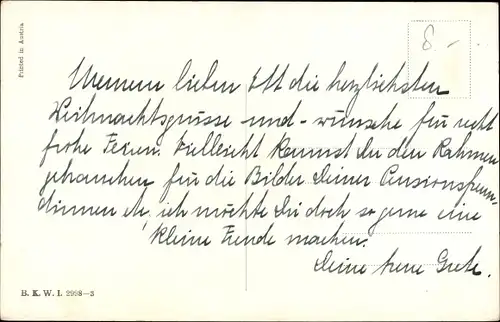 Printed in Austria
8.-
Meinem lieben Ott die herzlichsten
Weihnachtsgrüsse - und - wünsche für recht
frohe Ferien. Vielleicht kannst Du den Rahmen
gebrauchen für die Bilder Deiner Pensionsfreun-
dinnen etc, ich möchte Dir doch so gerne eine
kleine Freude machen.
Deine treue Grete.
B. K. W. I. 2998-3